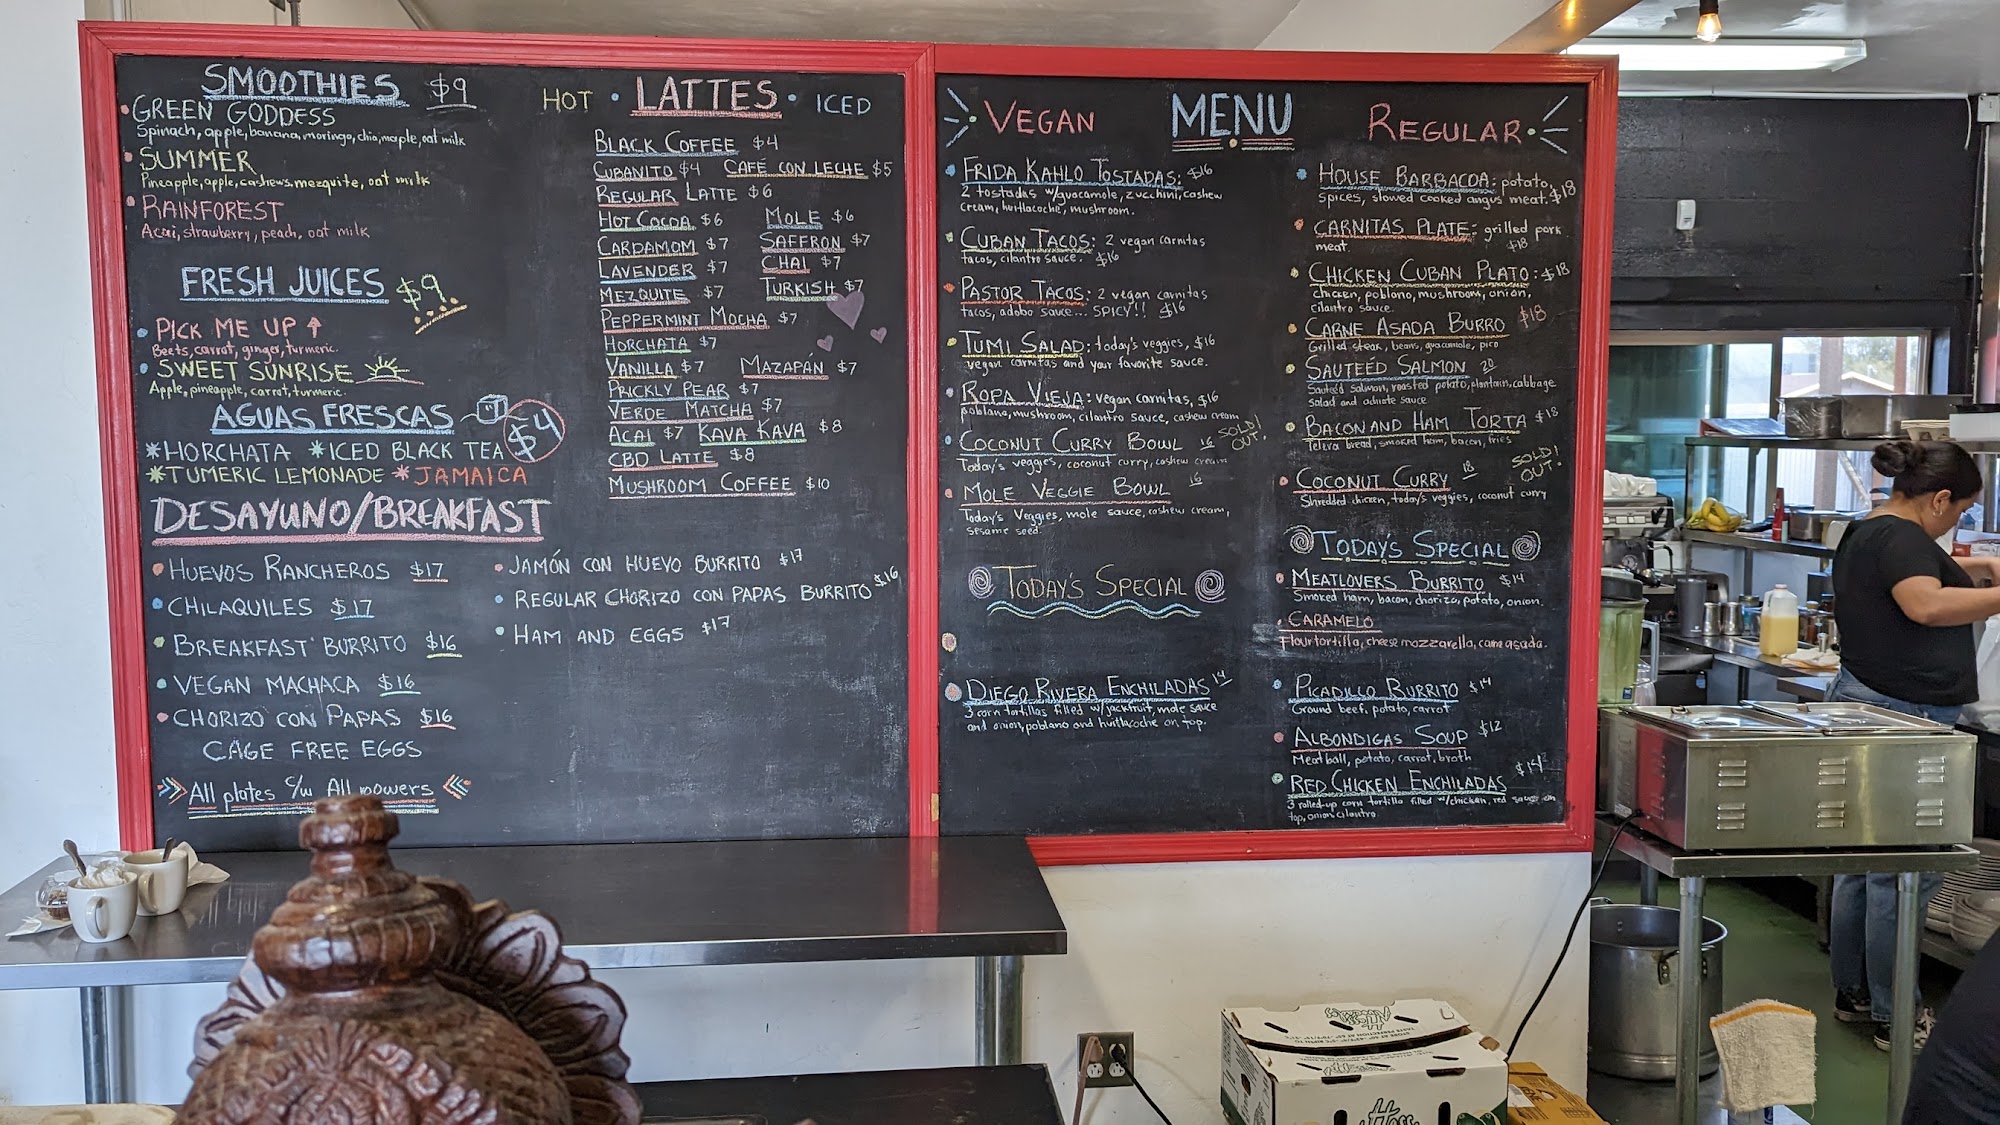 SMOOTHIES $9
GREEN GODDESS
Spinach, apple, banana, moringa, chia, maple, oat milk
SUMMER
Pineapple, apple, cashews, mezquite, oat milk
RAINFOREST
Acai, strawberry, peach, oat milk
FRESH JUICES $9
PICK ME UP ↑
Beets, carrot, ginger, turmeric.
SWEET SUNRISE
Apple, pineapple, carrot, turmeric.
AGUAS FRESCAS $4
*HORCHATA *ICED BLACK TEA
*TUMERIC LEMONADE *JAMAICA
DESAYUNO/BREAKFAST
HUEVOS RANCHEROS $17
CHILAQUILES $17
BREAKFAST BURRITO $16
VEGAN MACHACA $16
CHORIZO CON PAPAS $16
CAGE FREE EGGS
All plates c/w All powers
JAMÓN CON HUEVO BURRITO $17
REGULAR CHORIZO CON PAPAS BURRITO $16
HAM AND EGGS $17
HOT • LATTES • ICED
BLACK COFFEE $4
CUBANITO $4 CAFÉ CON LECHE $5
REGULAR LATTE $6
HOT COCOA $6 MOLE $6
CARDAMOM $7 SAFFRON $7
LAVENDER $7 CHAI $7
MEZQUITE $7 TURKISH $7
PEPPERMINT MOCHA $7
HORCHATA $7
VANILLA $7 MAZAPÁN $7
PRICKLY PEAR $7
VERDE MATCHA $7
ACAI $7 KAVA KAVA $8
CBD LATTE $8
MUSHROOM COFFEE $10
VEGAN MENU REGULAR
FRIDA KAHLO TOSTADAS: $16
2 tostadas w/guacamole, zucchini, cashew
cream, huitlacoche, mushroom.
CUBAN TACOS: 2 vegan carnitas
tacos, cilantro sauce. $16
PASTOR TACOS: 2 vegan carnitas
tacos, adobo sauce... SPICY!! $16
TUMI SALAD: today's veggies, $16
vegan carnitas and your favorite sauce.
ROPA VIEJA: vegan carnitas, $16
poblano, mushroom, cilantro sauce, cashew cream
COCONUT CURRY BOWL 16 SOLD OUT!
Today's veggies, coconut curry, cashew cream
MOLE VEGGIE BOWL 16
Today's Veggies, mole sauce, cashew cream,
sesame seed.
TODAY'S SPECIAL
DIEGO RIVERA ENCHILADAS 14
3 corn tortillas filled w/jackfruit, mole sauce
and onion, poblano and huitlacoche on top.
HOUSE BARBACOA: potato,
spices, slowed cooked angus meat. $18
CARNITAS PLATE: grilled pork
meat $18
CHICKEN CUBAN PLATO: $18
chicken, poblano, mushroom, onion,
cilantro sauce.
CARNE ASADA BURRO $18
Grilled steak, beans, guacamole, pico
SAUTEÉD SALMON 20
Sauteéd salmon, roasted potato, plantain, cabbage
salad and achiote sauce
BACON AND HAM TORTA $18
Telera bread, smoked ham, bacon, fries
COCONUT CURRY 18 SOLD! OUT!
Shredded chicken, today's veggies, coconut curry
TODAY'S SPECIAL
MEATLOVERS BURRITO $14
Smoked ham, bacon, chorizo, potato, onion.
CARAMELO
Flour tortilla, cheese mozzarella, carne asada.
PICADILLO BURRITO $14
Ground beef, potato, carrot
ALBONDIGAS SOUP $12
Meatball, potato, carrot, broth
RED CHICKEN ENCHILADAS $14
3 rolled-up corn tortilla filled w/chicken, red sauce on
top, onion, cilantro.
Hass